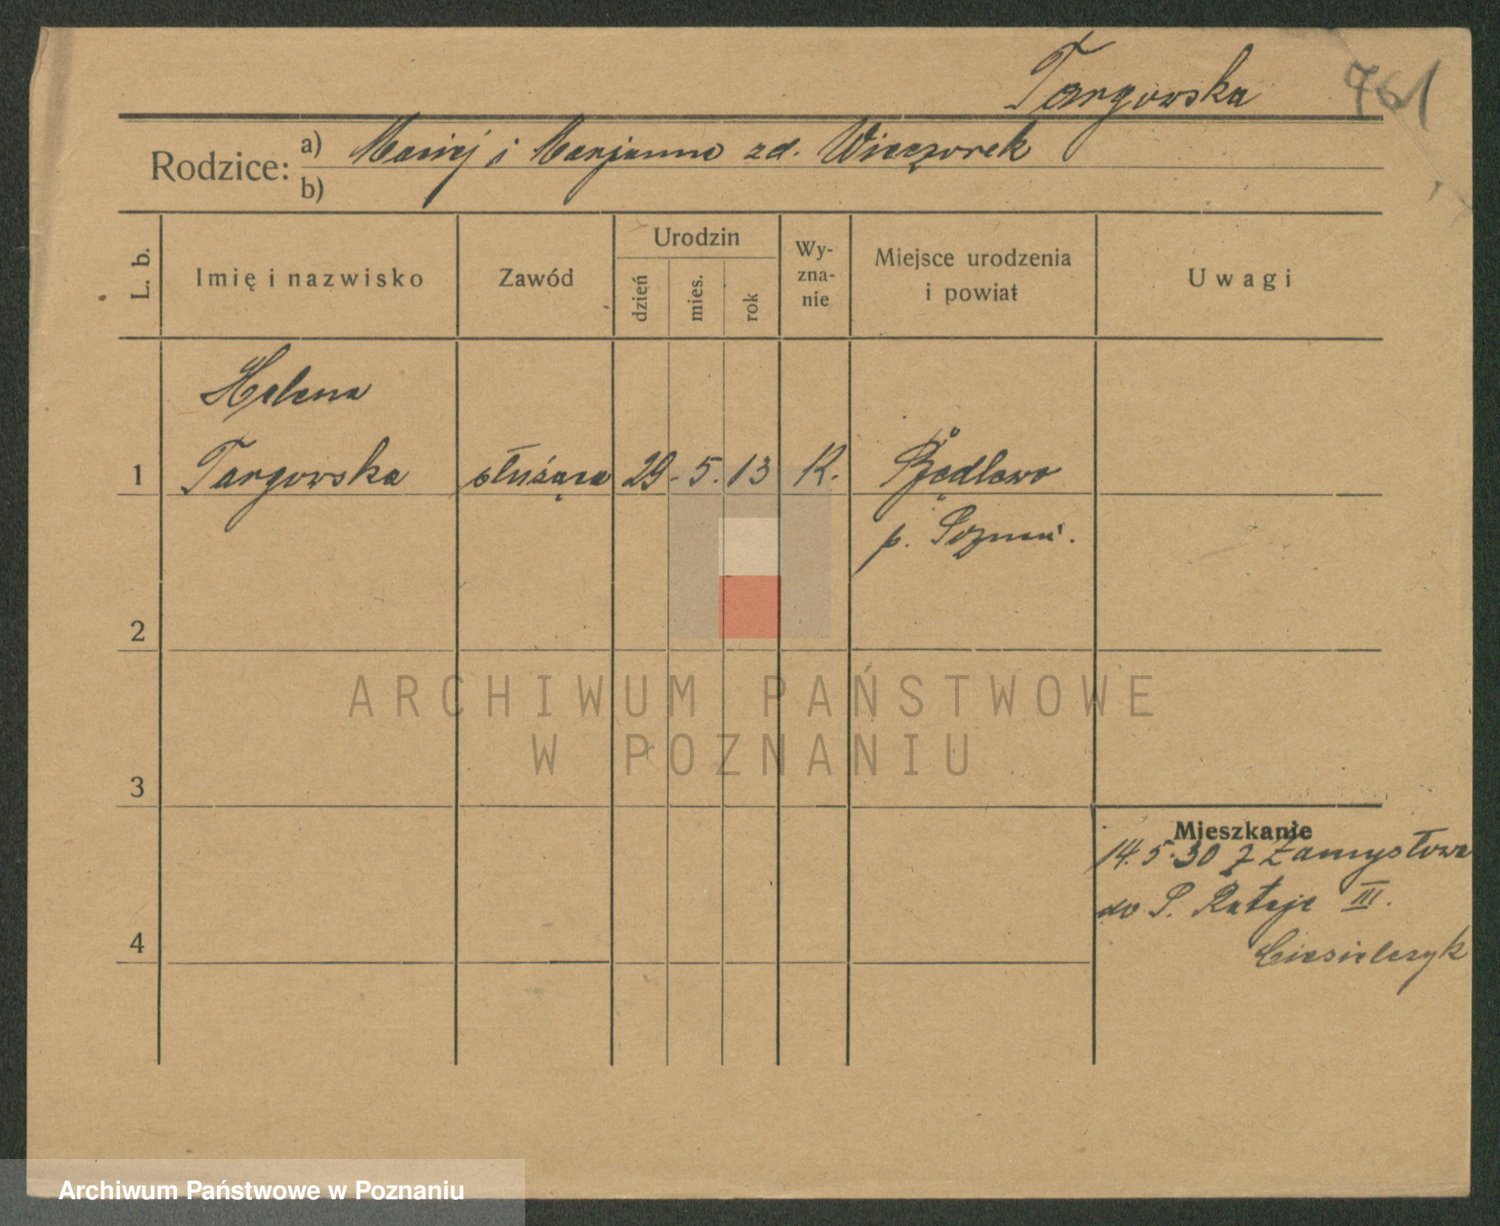 Targowska
761
Rodzice: a) Maciej i Marjanna zd. Wieczorek
b)
L. b.
Imię i nazwisko
Zawód
Urodzin
dzień
mies.
rok
Wy-
zna-
nie
Miejsce urodzenia
i powiat
Uwagi
Helena
1 Targowska służąca 29. 5. 13 K. Będlewo
p. Poznań.
2
ARCHIWUM PAŃSTWOWE
W POZNANIU
3
Mieszkanie
14.5.30 z Zamysłowa
do P. Rataje III.
4
Ciesielczyk
Archiwum Państwowe w Poznaniu